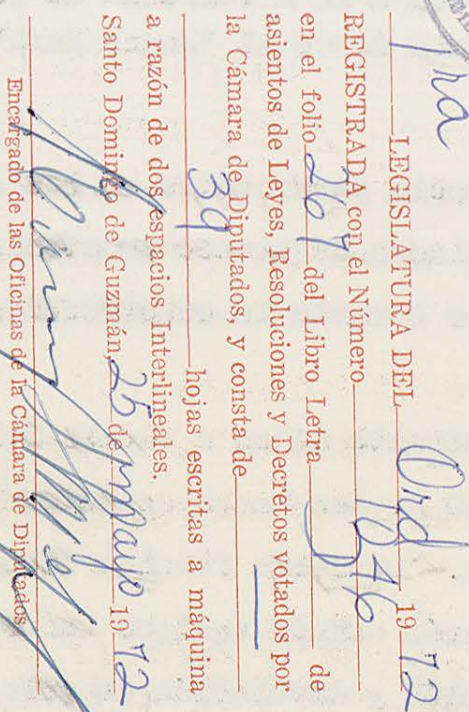 1ra LEGISLATURA DEL Ord 1972
REGISTRADA con el Número 546
en el folio 267 del Libro Letra de
asientos de Leyes, Resoluciones y Decretos votados por
la Cámara de Diputados, y consta de
39 hojas escritas a máquina
a razón de dos espacios Interlineales.
Santo Domingo de Guzmán, 25 de mayo 1972
Encargado de las Oficinas de la Cámara de Diputados